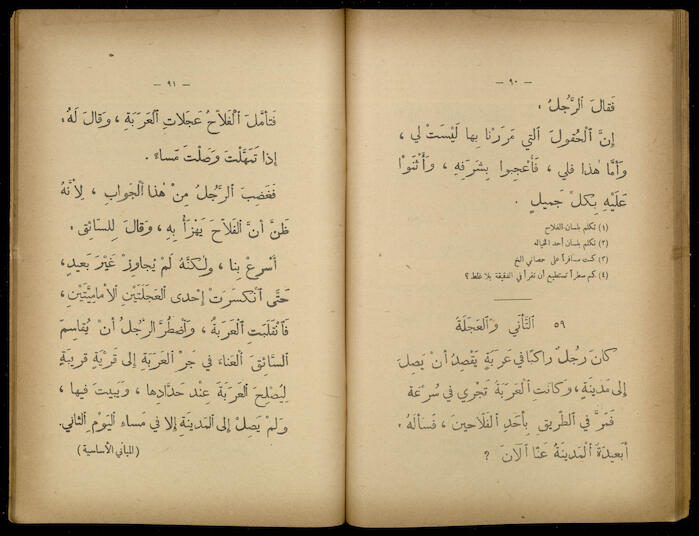 — ٩٠ —
فَقالَ الرَّجُلُ :
إِنَّ ٱلْحُقولَ ٱلَّتي مَرَرْنا بِها لَيْسَتْ لي ،
وَأَمَّا هٰذا فَلي ، فَأُعْجِبوا بِشَرَفِهِ ، وَأَثْنَوْا
عَلَيْهِ بِكُلِّ جَميلٍ .
(١) تكلم بلسان الفلاح
(٢) تكلم بلسان أحد
(٣) كنت مسافراً على حصاني الخ
(٤) كم سطراً تستطيع أن تقرأ في الدقيقة بلا غلط ؟
٥٩ اَلتَّأَنّي وَٱلْعَجَلَةُ
كانَ رَجُلٌ راكِبًا في عَرَبَةٍ يَقْصِدُ أَنْ يَصِلَ
إِلى مَدينَةٍ ، وَكانَتِ ٱلْعَرَبَةُ تَجْري في سُرْعَةٍ
فَمَرَّ في ٱلطَّريقِ بِأَحَدِ ٱلْفَلّاحينَ ، فَسَأَلَهُ .
أَبَعيدَةٌ ٱلْمَدينَةُ عَنّا ٱلْآنَ ؟
— ٩١ —
فَتَأَمَّلَ ٱلْفَلّاحُ عَجَلاتِ ٱلْعَرَبَةِ ، وَقالَ لَهُ :
إِذا تَمَهَّلْتَ وَصَلْتَ مَساءً .
فَغَضِبَ ٱلرَّجُلُ مِنْ هٰذا ٱلْجَوابِ ، لِأَنَّهُ
ظَنَّ أَنَّ ٱلْفَلّاحَ يَهْزَأُ بِهِ ، وَقالَ لِلسّائِقِ :
أَسْرِعْ بِنا ، وَلٰكِنَّهُ لَمْ يُجاوِزْ غَيْرَ بَعيدٍ ،
حَتَّى ٱنْكَسَرَتْ إِحْدى ٱلْعَجَلَتَيْنِ ٱلْأَمامِيَّتَيْنِ ،
فَٱنْقَلَبَتِ ٱلْعَرَبَةُ ، وَٱضْطُرَّ ٱلرَّجُلُ أَنْ يُقاسِمَ
ٱلسّائِقَ ٱلْعَناءَ في جَرِّ ٱلْعَرَبَةِ إِلى قَرْيَةٍ قَريبَةٍ
لِيُصْلِحَ ٱلْعَرَبَةَ عِنْدَ حَدّادِها ، وَيَبيتَ فيها ،
وَلَمْ يَصِلْ إِلى ٱلْمَدينَةِ إِلّا في مَساءِ ٱلْيَوْمِ ٱلثّاني .
(المباني الأساسية)